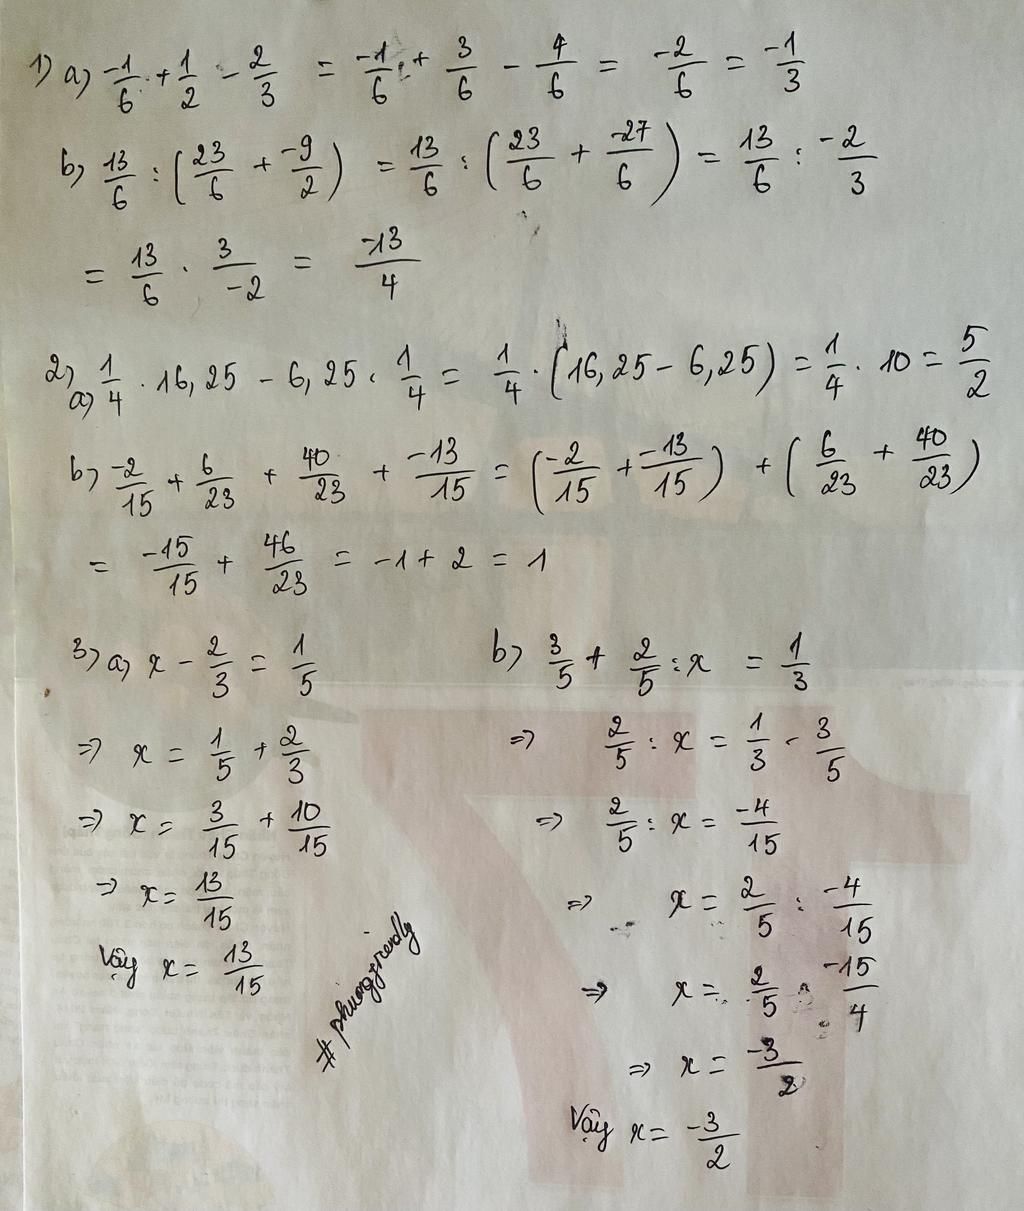 1) a) -1/6 + 1/2 - 2/3 = -1/6 + 3/6 - 4/6 = -2/6 = -1/3
b) 13/6 : (23/6 + -9/2) = 13/6 : (23/6 + -27/6) = 13/6 : -2/3
= 13/6 . 3/-2 = -13/4
2) a) 1/4 . 16,25 - 6,25 . 1/4 = 1/4 . (16,25 - 6,25) = 1/4 . 10 = 5/2
b) -2/15 + 6/23 + 40/23 + -13/15 = (-2/15 + -13/15) + (6/23 + 40/23)
= -15/15 + 46/23 = -1 + 2 = 1
3) a) x - 2/3 = 1/5
=> x = 1/5 + 2/3
=> x = 3/15 + 10/15
=> x = 13/15
Vậy x = 13/15
b) 3/5 + 2/5 : x = 1/3
=> 2/5 : x = 1/3 - 3/5
=> 2/5 : x = -4/15
=> x = 2/5 : -4/15
=> x = 2/5 . -15/4
=> x = -3/2
Vậy x = -3/2